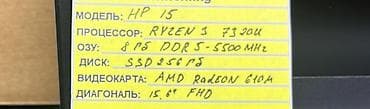 МОДЕЛЬ: HP 15
ПРОЦЕССОР: RYZEN 3 7320U
ОЗУ: 8 Гб DDR5-5500 MHz
ДИСК: SSD 256 Гб
ВИДЕОКАРТА: AMD RADEON 610M
ДИАГОНАЛЬ: 15,6" FHD